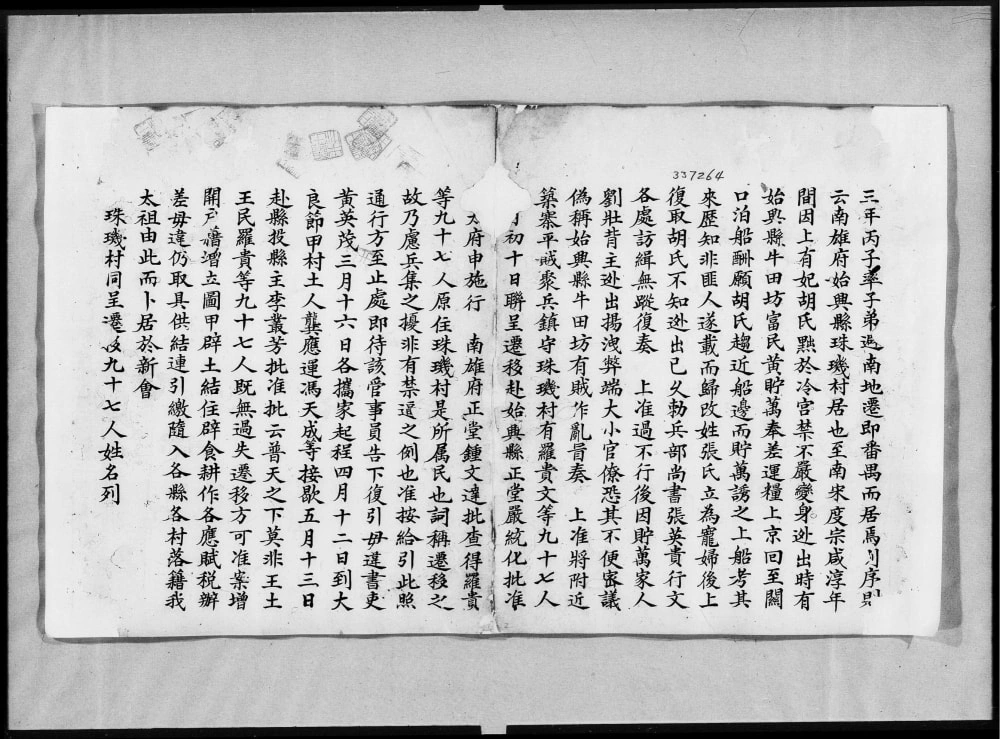 337264
三年丙子率子弟過南地遷即番禺而居焉列序則
云南雄府始興縣珠璣村居也至南宋度宗咸淳年
間因上有妃胡氏黜於冷宮禁不嚴變身迯出時有
始興縣牛田坊富民黃貯萬奉差運糧上京回至關
口泊船酬願胡氏趨近船邊而貯萬誘之上船考其
來歷知非匪人遂載而歸改姓張氏立為寵婦後上
復取胡氏不知迯出已久勅兵部尚書張英貴行文
各處訪緝無蹤復奏 上准過不行後因貯萬家人
劉壯背主迯出揚洩弊端大小官僚恐其不便密議
偽稱始興縣牛田坊有賊作亂冒奏 上准將附近
築寨平賊聚兵鎮守珠璣村有羅貴文等九十七人
初十日聯呈遷移赴始興縣正堂嚴統化批准
府申施行 南雄府正堂鍾文達批查得羅貴
等九十七人原住珠璣村是所属民也詞稱遷移之
故乃慮兵集之擾非有禁遷之例也准按給引此照
通行方至止處即待該管事員告下復引毋違書吏
黃英茂三月十六日各攜家起程四月十二日到大
良節甲村土人龔應運馮天成等接歇五月十三日
赴縣投縣主李叢芳批准批云普天之下莫非王土
王民羅貴等九十七人既無過失遷移方可准案增
開戶籍增立圖甲辟土結住辟食耕作各應賦税辦
差毋違仍取具供結連引繳隨入各縣各村落籍我
太祖由此而卜居於新會
珠璣村同呈遷徙九十七人姓名列